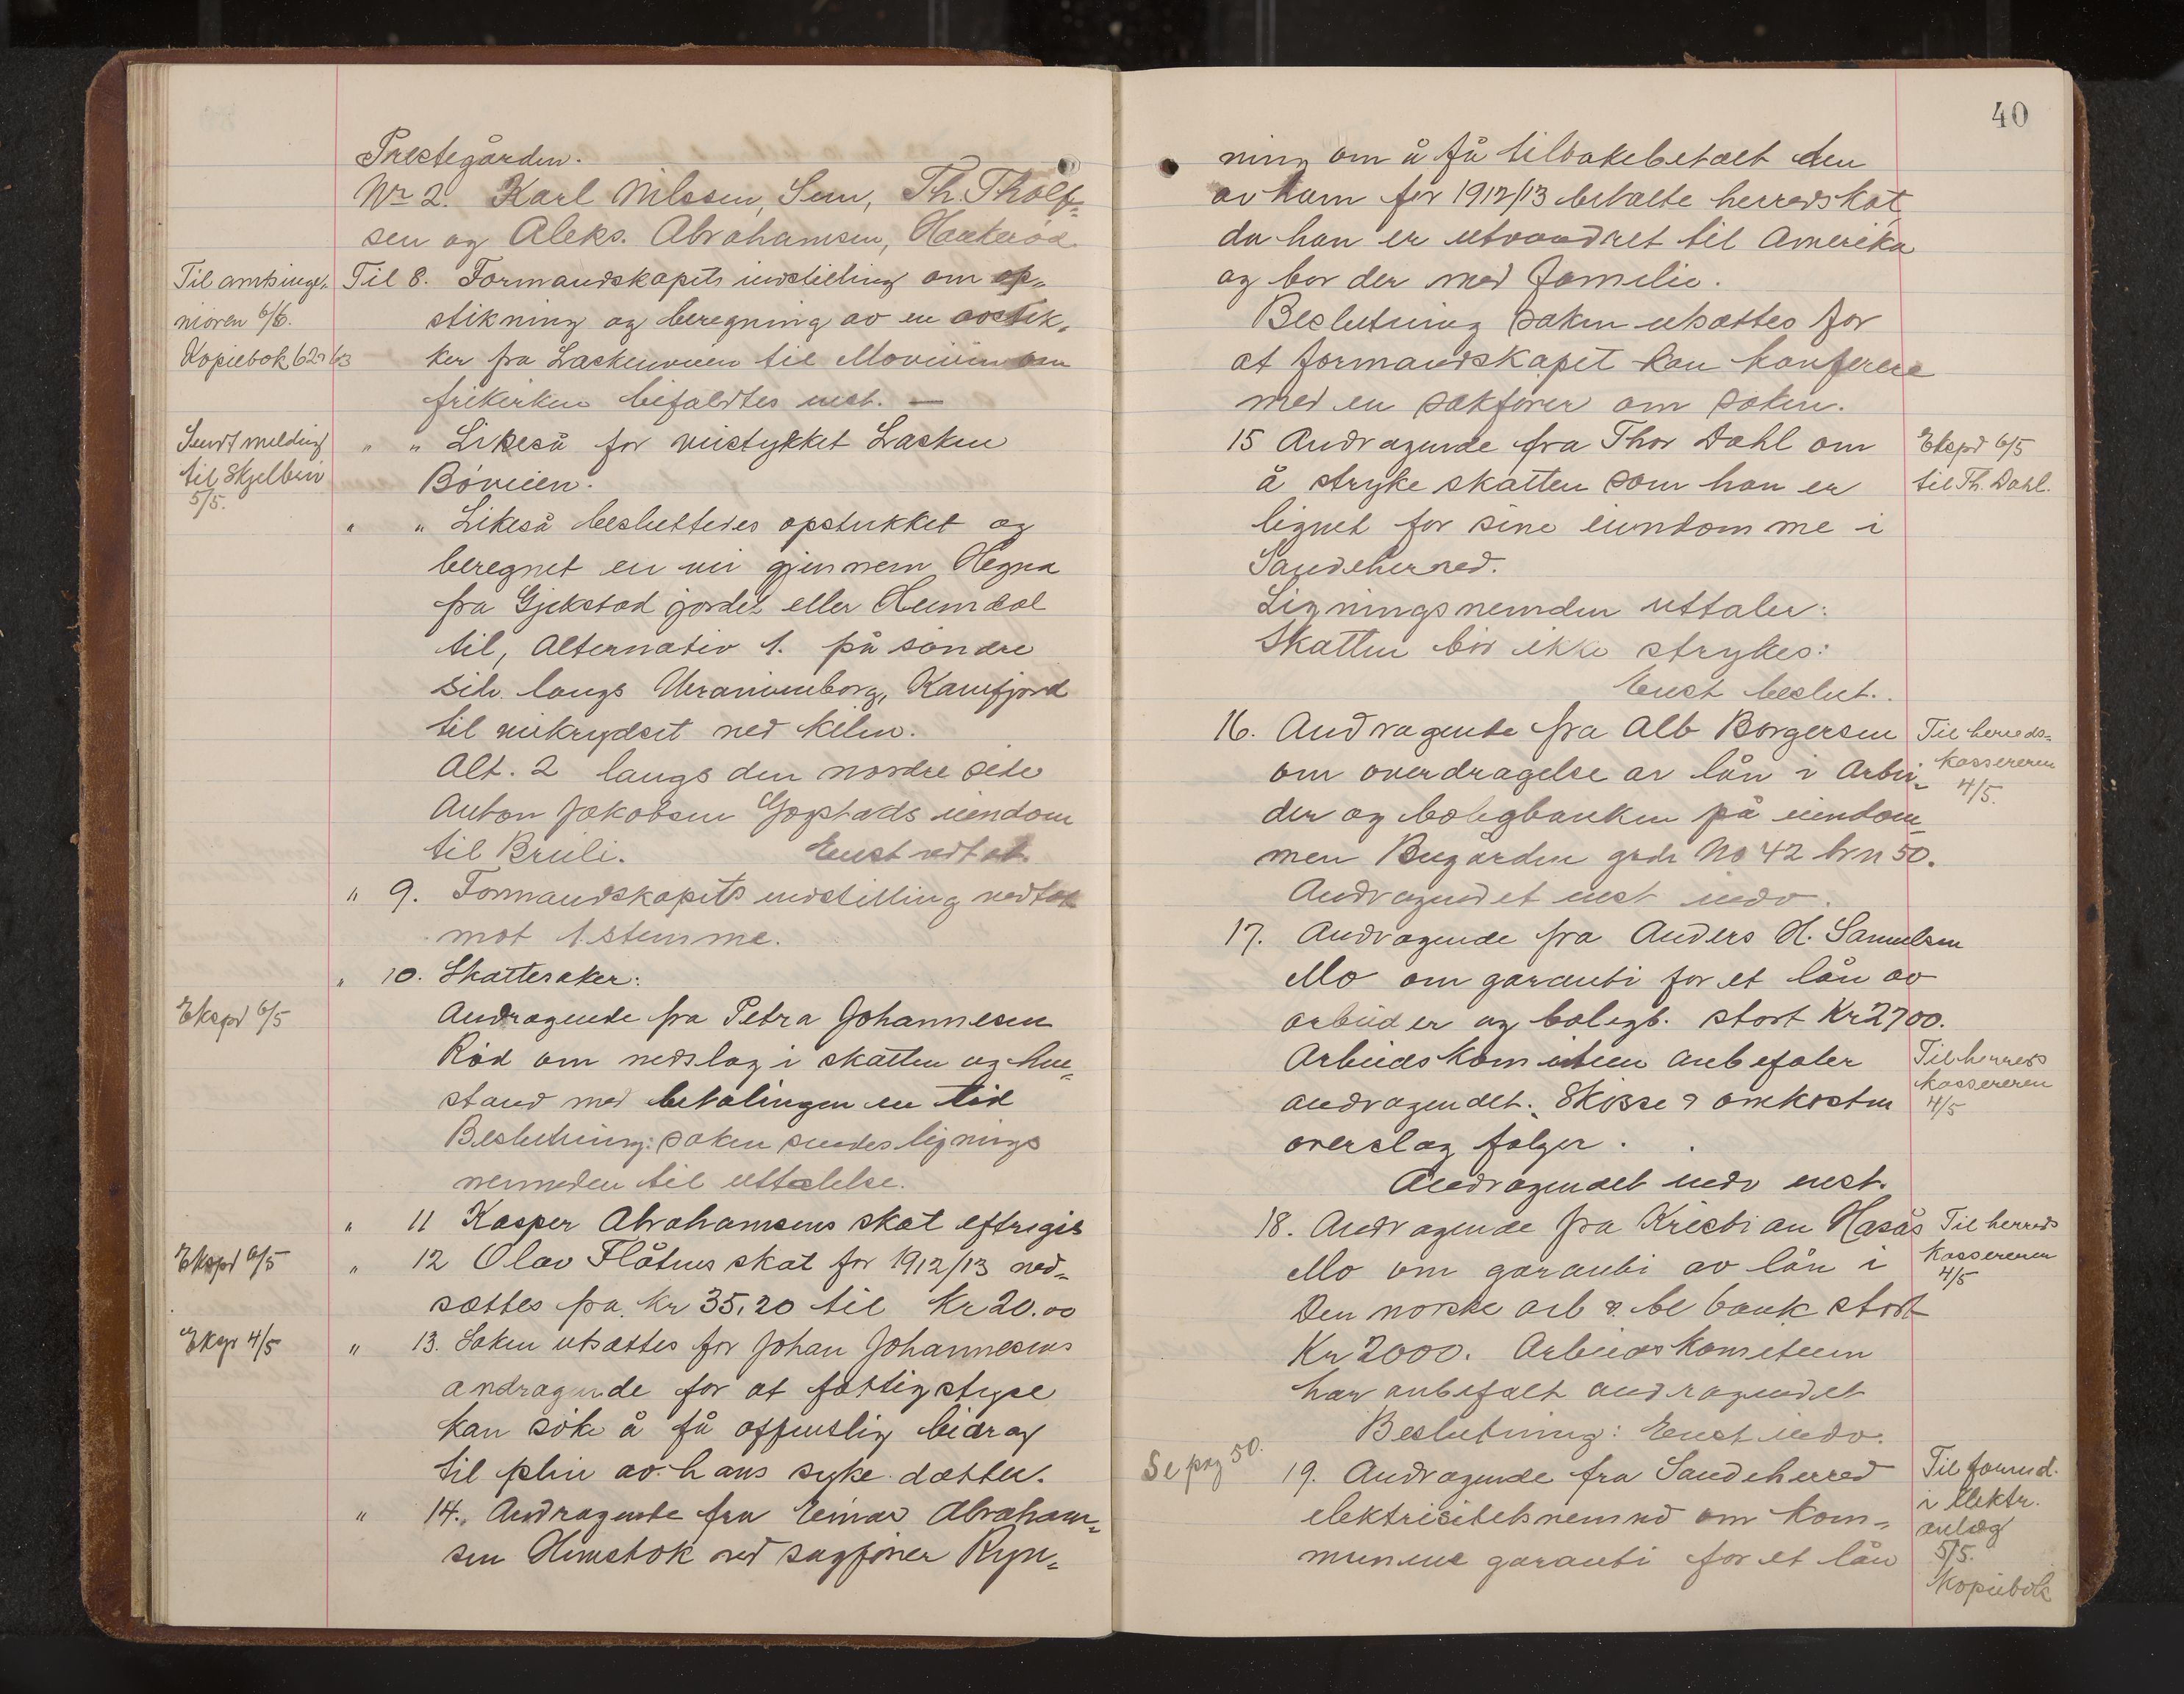 Prestegården.
Nr 2. Karl Nilssen, Sem, Th. Tholf-
sen og Aleks. Abrahamsen, Haukerød.
Til amtsinge-
niøren 6/6.
Kopiebok 62 63
Til 8. Formandskapets indstilling om op-
stikning og beregning av en avstik-
ker fra Laskenveien til Moveien om
frikirken bifaldtes enst. —
Sendt melding
til Skjelbrei
5/5.
" " Likeså for veistykket Lasken
Bøveien.
" " Likeså besluttedes opstukket og
beregnet en vei gjennem Hegna
fra Gjekstad jordet eller Heimdal
til, Alternativ 1. på søndre
side langs Uranienborg, Kamfjord
til veikrydset ved Kilen.
Alt. 2 langs den nordre side
Anton Jakobsen Gogstads eiendom
til Breili. Enst vedtat.
" 9. Formandskapets indstilling vedtat
mot 1 stemme.
" 10. Skattesaker:
Ekspd 6/5
Andragende fra Petra Johannesen
Rød om nedslag i skatten og hen-
stand med betalingen en tid
Beslutning: saken sendes lignings
nemnden til uttalelse.
" 11 Kasper Abrahamsens skat eftergis
Ekspd 6/5
" 12 Olav Flåtens skat for 1912/13 ned-
sættes fra Kr 35,20 til Kr 20.00
Eksp 4/5
" 13. Saken utsættes for Johan Johannesens
andragende for at fattigstyre
kan søke å få offenslig bidrag
til plei av hans syke datter.
" 14. Andragende fra Einar Abraham-
sen Himstok ved sagfører Ryn-
40
ning om å få tilbakebetalt den
av ham for 1912/13 betalte herredskat
da han er utvandret til Amerika
og bor der med familie.
Beslutning saken utsættes for
at formandskapet kan konferere
med en sakfører om saken.
15 Andragende fra Thor Dahl om
å stryke skatten som han er
lignet for sine eiendomme i
Sandeherred.
Ekspd 6/5
til Th. Dahl.
Ligningsnemden uttaler:
Skatten bør ikke strykes:
Enst beslut.
16. Andragende fra Alb Borgersen
om overdragelse av lån i Arbei-
der og boligbanken på eiendom-
men Bugården grdr No 42 brn 50.
Til herreds-
kassereren
4/5.
Andragendet enst indv.
17. Andragende fra Anders H. Samuelsen
Mo om garanti for et lån av
arbeider og boligb. stort Kr 2700.
Arbeidskomiteen anbefaler
andragendet. Skisse & omkostn
overslag følger.
Til herreds
kassereren
4/5
Andragendet indv enst.
18. Andragende fra Kristian Hasås
Mo om garanti av lån i
Den norske arb & bl bank stort
Kr 2000. Arbeidskomiteen
har anbefalt andragendet
Til herreds
kassereren
4/5
Beslutning: Enst indv.
Se pag 50.
19. Andragende fra Sandeherred
elektrisitetsnemnd om kom-
munens garanti for et lån
Til formd.
i elektr.
anlæg
5/5.
Kopiebok